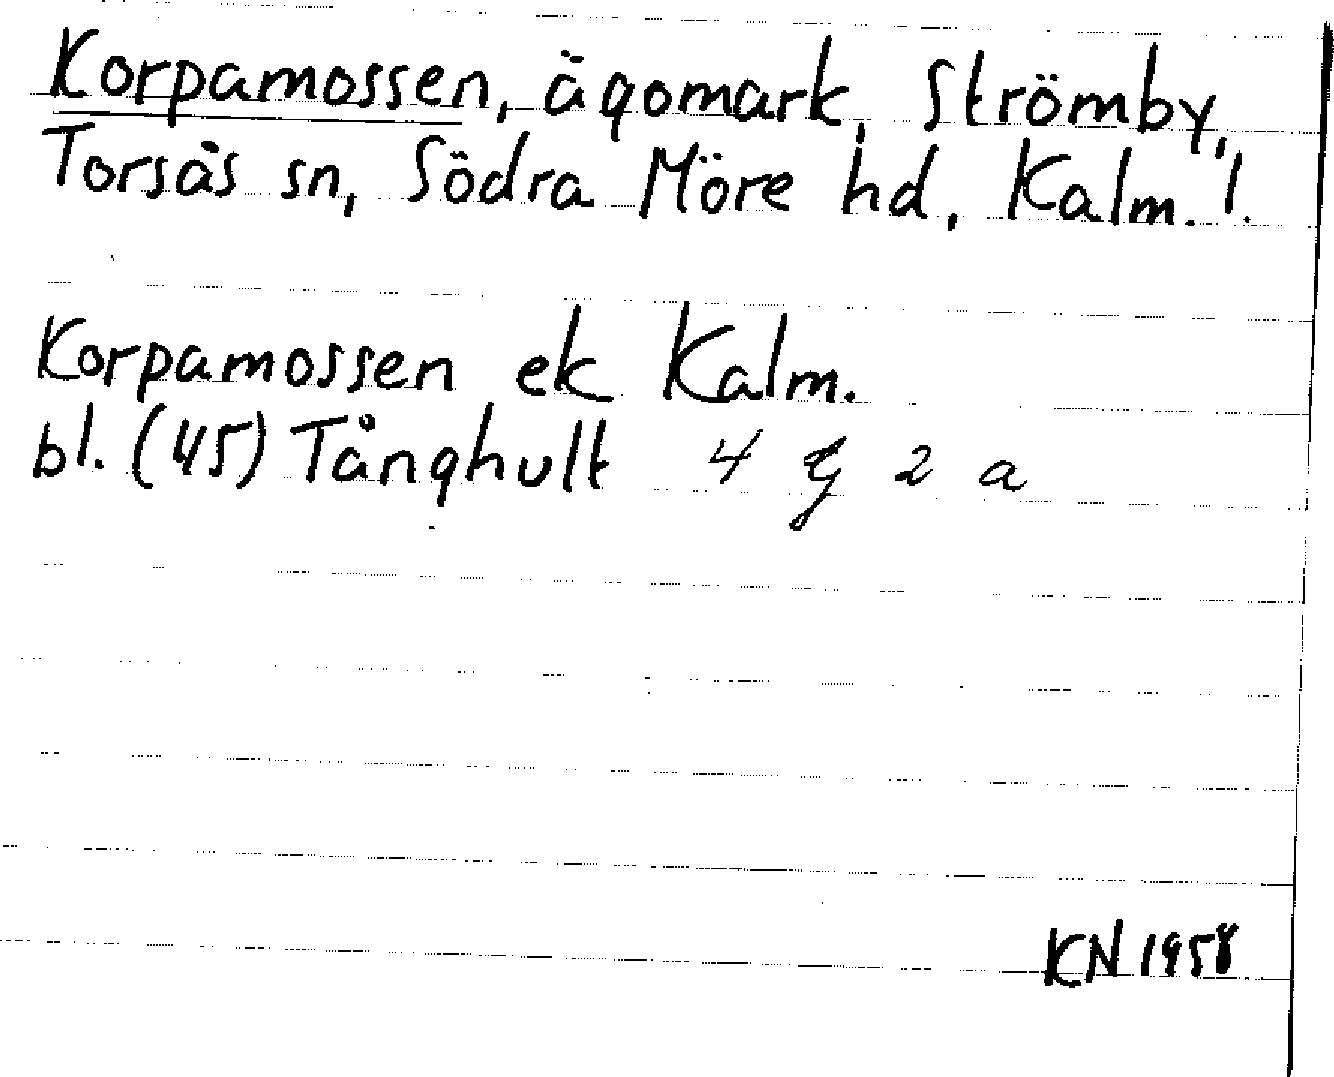 Korpamossen, ägomark, Strömby,
Torsås sn, Södra Möre hd, Kalm. l.
Korpamossen ek Kalm.
bl. (45) Tånghult 4 G 2 a
KN 1958